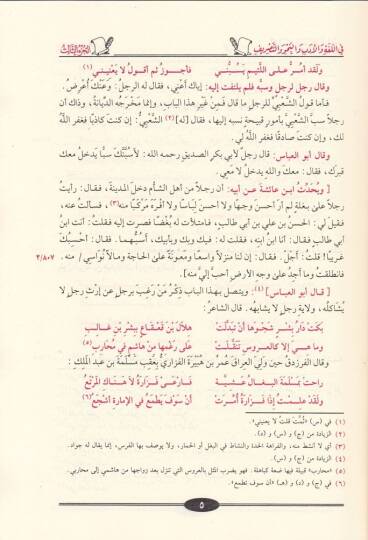 في اللغة والأدب والنحو والتصريف
الجزء الثالث
ولقد أمُرُّ على اللئيم يَسُبُّني فأجوزُ ثم أقولُ لا يَعْنِيني(١)
وقال رجل لرجل وسبَّه فلم يلتفت إليه: إياك أعني، فقال له الرجلُ: وعَنْكَ أُعْرِضُ.
فأما قولُ الشَّعبيِّ للرجل ما قال فَمِنْ غيرِ هذا الباب، وإنما مَخْرَجُه الدِّيانةُ، وذاك أن
رجلاً سبَّ الشعبيَّ بأمورٍ قبيحةٍ نسبه إليها، فقال [له](٢) الشعبيُّ: إن كنتَ كاذبًا فغفر اللهُ
لك، وإن كنتَ صادقًا فغفر اللهُ لي.
وقال أبو العباس: قال رجلٌ لأبي بكر الصديق رحمه الله: لأسُبَّنَّكَ سبًّا يدخلُ معك
قبرَك، فقال: معكَ واللهِ يدخلُ لا معي.
[ ويُحَدَّثُ ابن عائشة عن أبيه: أن رجلاً من أهل الشأم دخل المدينةَ، فقال: رأيتُ
رجلاً على بغلةٍ لم أرَ أحسنَ وجهًا ولا أحسنَ لباسًا ولا أفْرَهَ مركبًا منه(٣)، فسألت عنه،
فقيل لي: الحسنُ بن علي بن أبي طالبٍ، فامتلأت له بُغْضًا فصرت إليه فقلتُ: أنت ابنُ
أبي طالبٍ فقال: أنا ابنُ ابنِه، فقلت له: فبك وبك وبأبيك، أسُبُّهما. فقال: أحْسِبُكَ
غريبًا؛ قلتُ: أجَلْ. فقال: إن لنا منزلاً واسعًا ومَعُونةً على الحاجة ومالاً نُواسي / منه. ٢/٨٠٧
فانطلقتُ وما أجِدُ على وجه الأرض أحبَّ إليَّ منه].
[ قال أبو العباس](٤): ويتصل بهذا الباب ذِكْرُ مَنْ رَغِبَ برجلٍ عن إرثِ رجلٍ لا
يُشاكلُه، وولايةِ رجلٍ لا يشابهُه. قال الشاعرُ:
بَكَتْ دَارُ بشرٍ شَجْوَها أنْ تَبدَّلَتْ هلالَ بْنَ قَعْقاعٍ ببِشْرِ بْنِ غالبِ
وما هيَ إلا كالعروسِ تَنَقَّلَتْ على رغْمِها مِنْ هاشمٍ في مُحاربِ(٥)
وقال الفرزدقُ حين وَلِيَ العراقَ عُمرُ بن هُبَيْرَةَ الفزاريُّ بعَقِبِ مَسْلَمةَ بن عبد الملكِ:
راحت بمَسْلَمةَ البِغالُ عَشيَّةً فارْعَيْ فَزارةُ لا هَناكِ المَرْتَعُ
ولَقدْ علمتُ إذا فَزارةُ أُمِّرَتْ أنْ سَوْفَ يَطْمَعُ في الإمارةِ أشْجَعُ(٦)
(١) في (س) «ثُمَّتَ قلتُ لا يعنيني».
(٢) الزيادة من (ج) و (س) و (د).
(٣) أي لا أنشط منه، والفراهة الحدة والنشاط في البغل أو الحمار، ولا يوصف بها الفرس، إنما يقال له جواد.
(٤) الزيادة من (س).
(٥) «محارب» قبيلة فيها ضعة كباهلة. فهو يضرب المثل بالعروس التي تنزل بعد زواجها من هاشمي إلى محاربي.
(٦) في (ج) و (د) و (هـ) «أن سوف تطمع».
٥